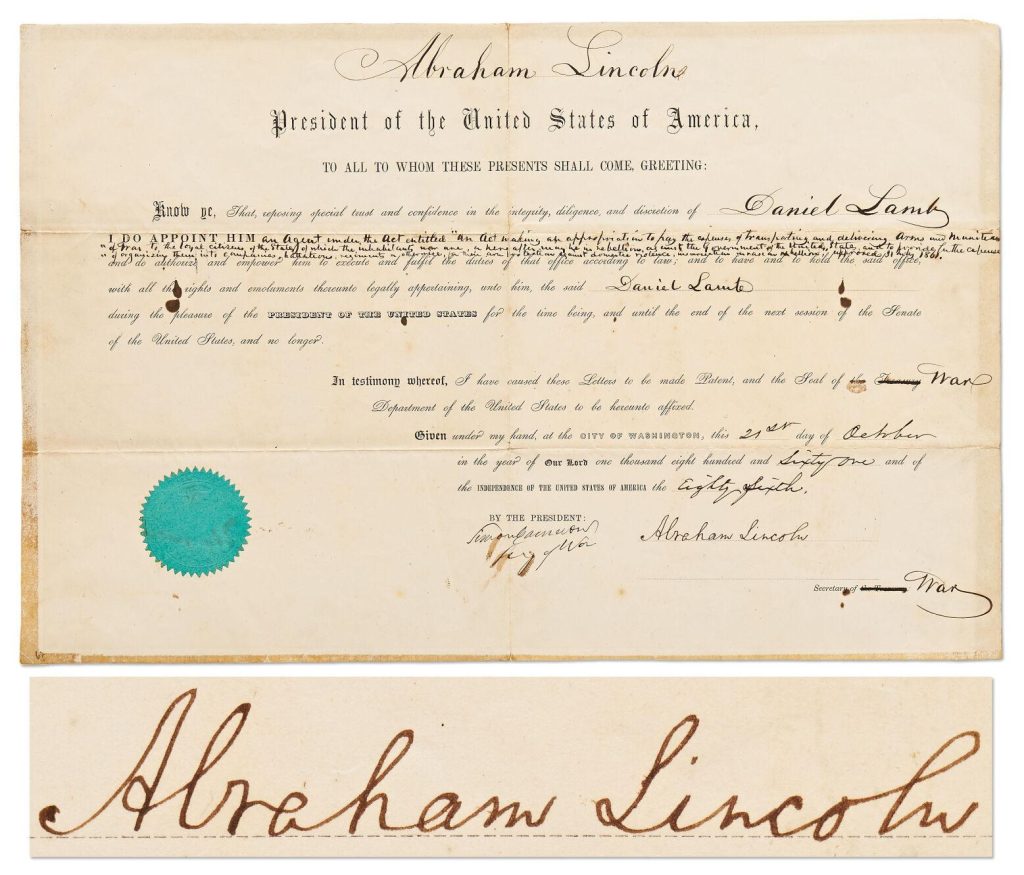 Abraham Lincoln
President of the United States of America,
TO ALL TO WHOM THESE PRESENTS SHALL COME, GREETING:
Know ye, That, reposing special trust and confidence in the integrity, diligence, and discretion of Daniel Lamb
I DO APPOINT HIM an Agent under the Act entitled "An Act making an appropriation to pay the expenses of transporting and delivering Arms and Munitions
"of War to the loyal citizens of the States of which the inhabitants now are, or hereafter may be in rebellion against the Government of the United States, and to provide for the expense
"of organizing them into companies, battalions, regiments or otherwise, for their own protection against domestic violence, insurrection invasion or rebellion," approved 31 July 1861.
and do authorize and empower him to execute and fulfil the duties of that office according to law; and to have and to hold the said office,
with all the rights and emoluments thereunto legally appertaining, unto him, the said Daniel Lamb
during the pleasure of the PRESIDENT OF THE UNITED STATES for the time being, and until the end of the next session of the Senate
of the United States, and no longer.
In testimony whereof, I have caused these Letters to be made Patent, and the Seal of the Treasury War
Department of the United States to be hereunto affixed.
Given under my hand, at the CITY OF WASHINGTON, this 21st day of October
in the year of Our Lord one thousand eight hundred and Sixty one and of
the INDEPENDENCE OF THE UNITED STATES OF AMERICA the Eighty Sixth.
BY THE PRESIDENT:
Simon Cameron
Secy of War
Abraham Lincoln
Secretary of the Treasury War
Abraham Lincoln